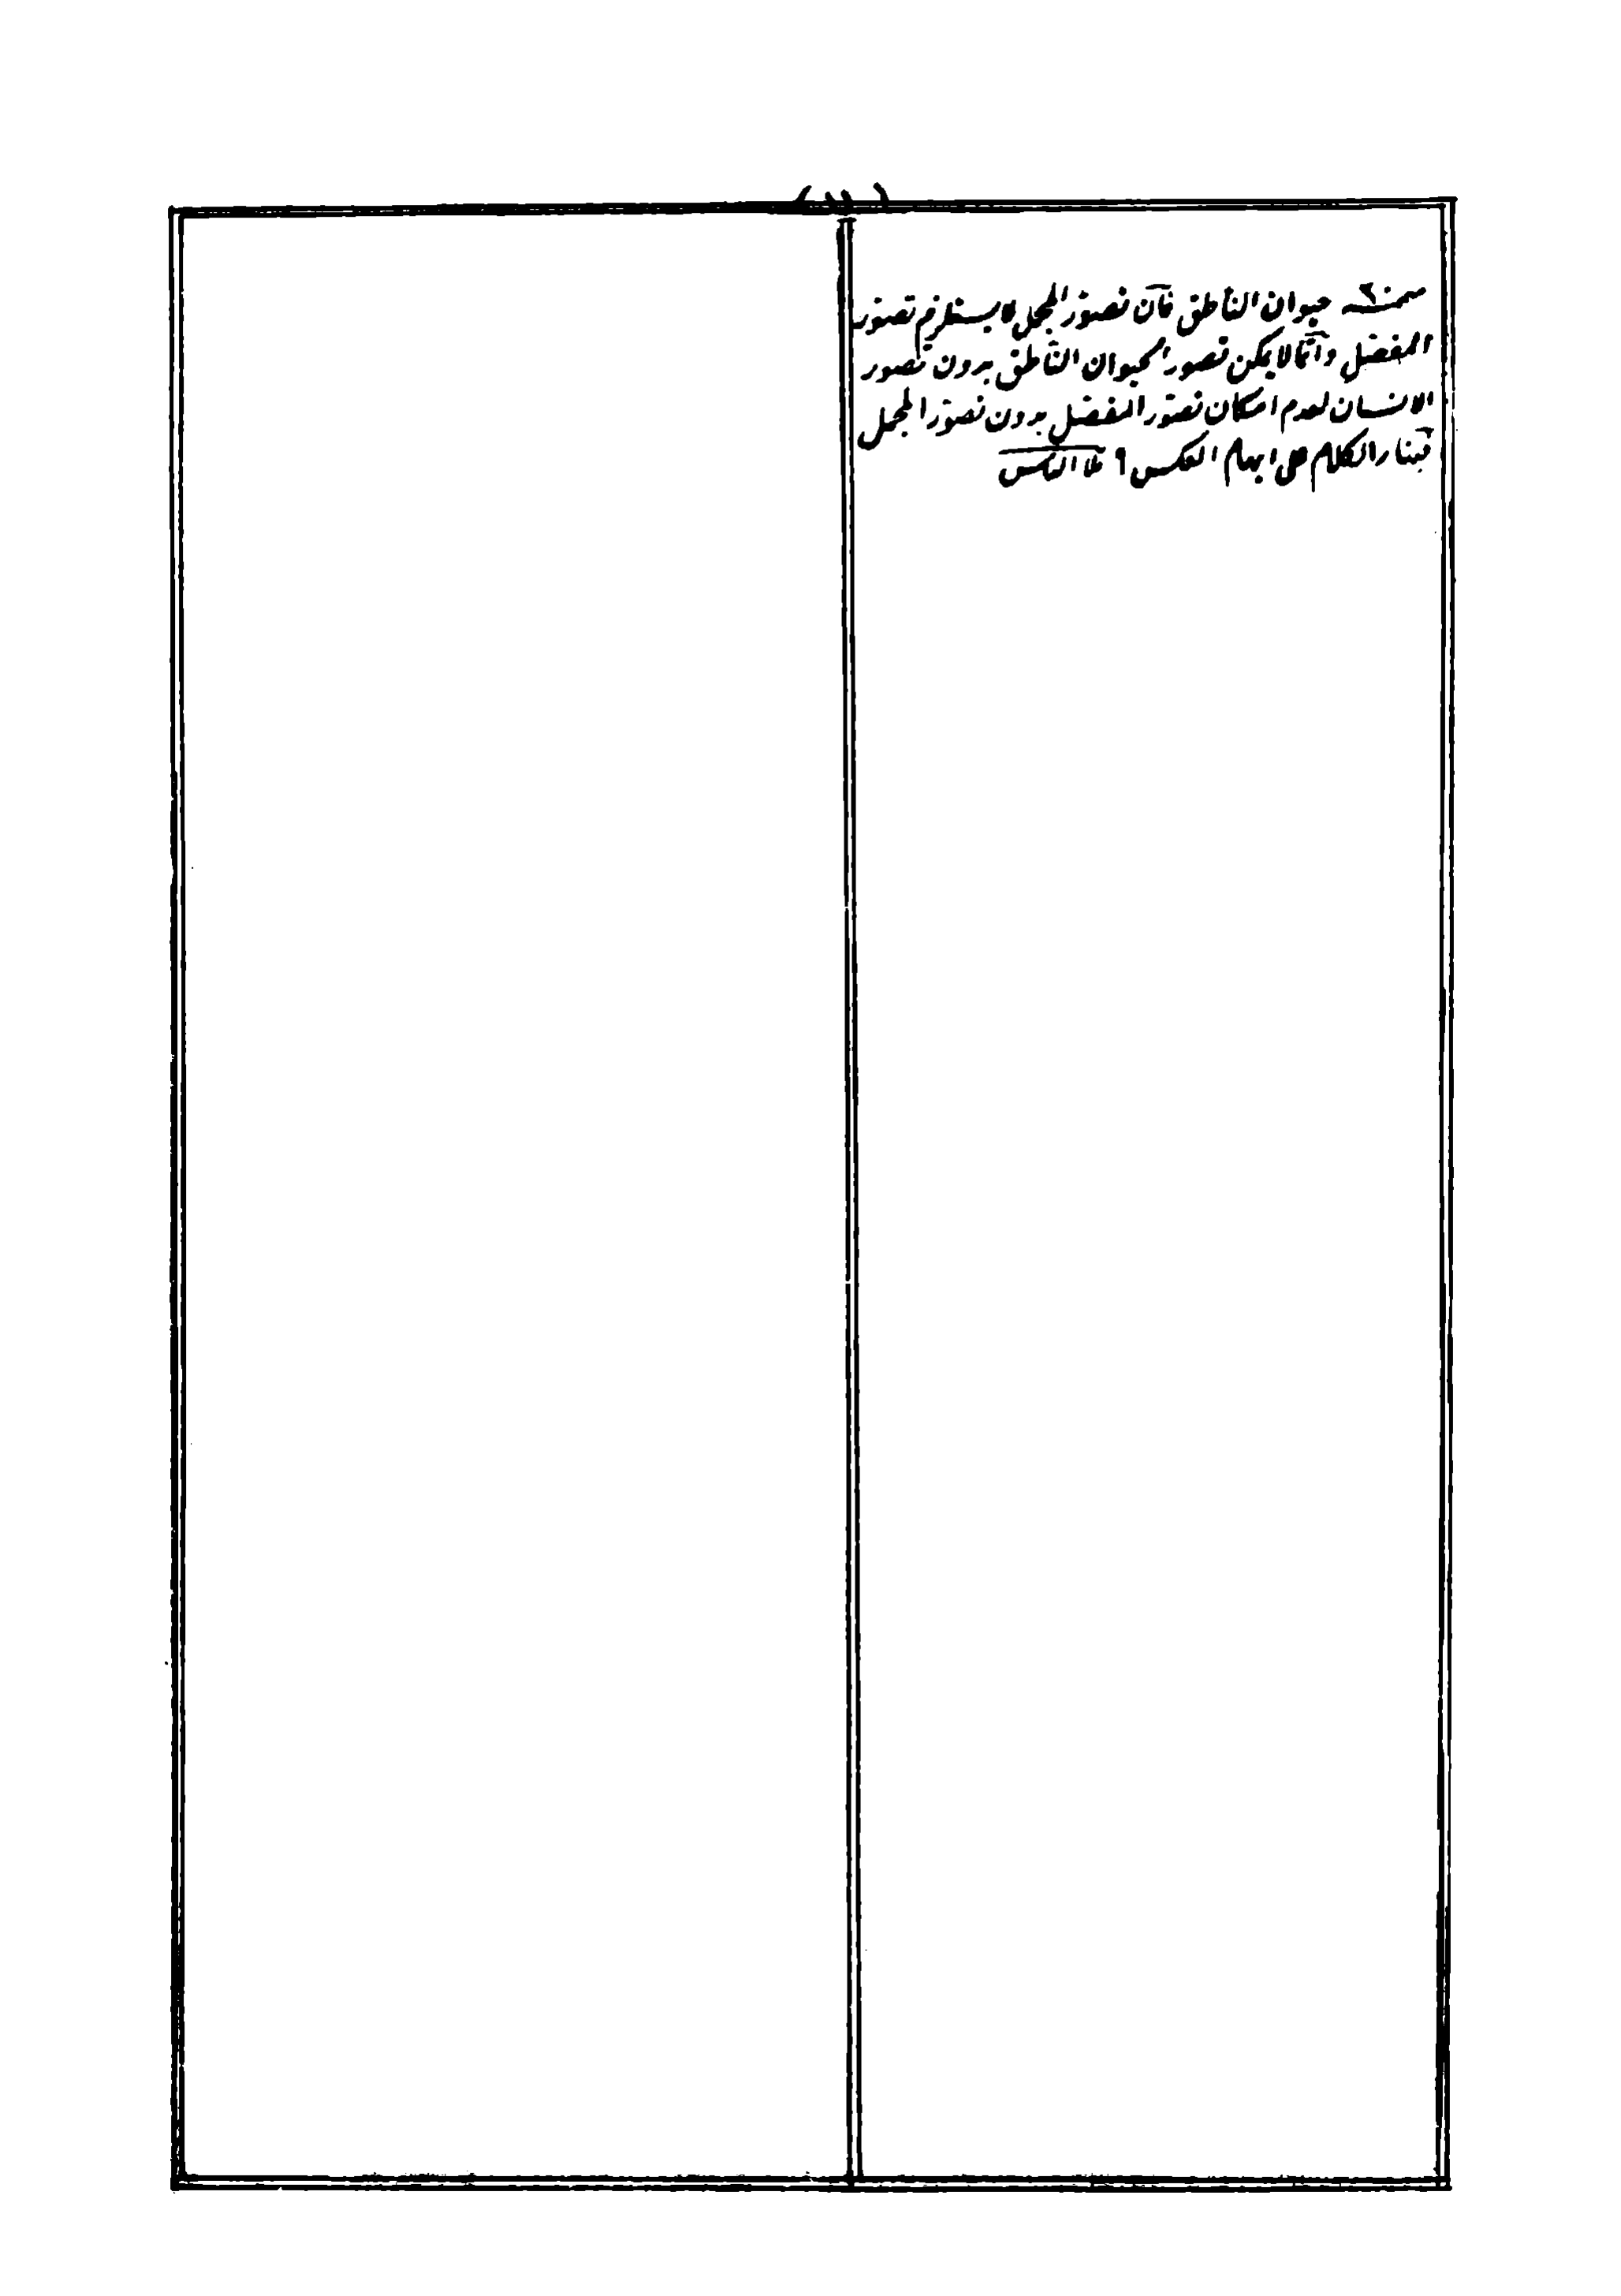 حيوان الناطق فان تصور المجمل لا يستلزم تصور
المفصل وانما لا يمكن تصور الحيوان الناطق بدون تصور
الانسان لعدم امكان تصور المفصل بدون تصور المجمل
الكلام على ايهام العكس ٩